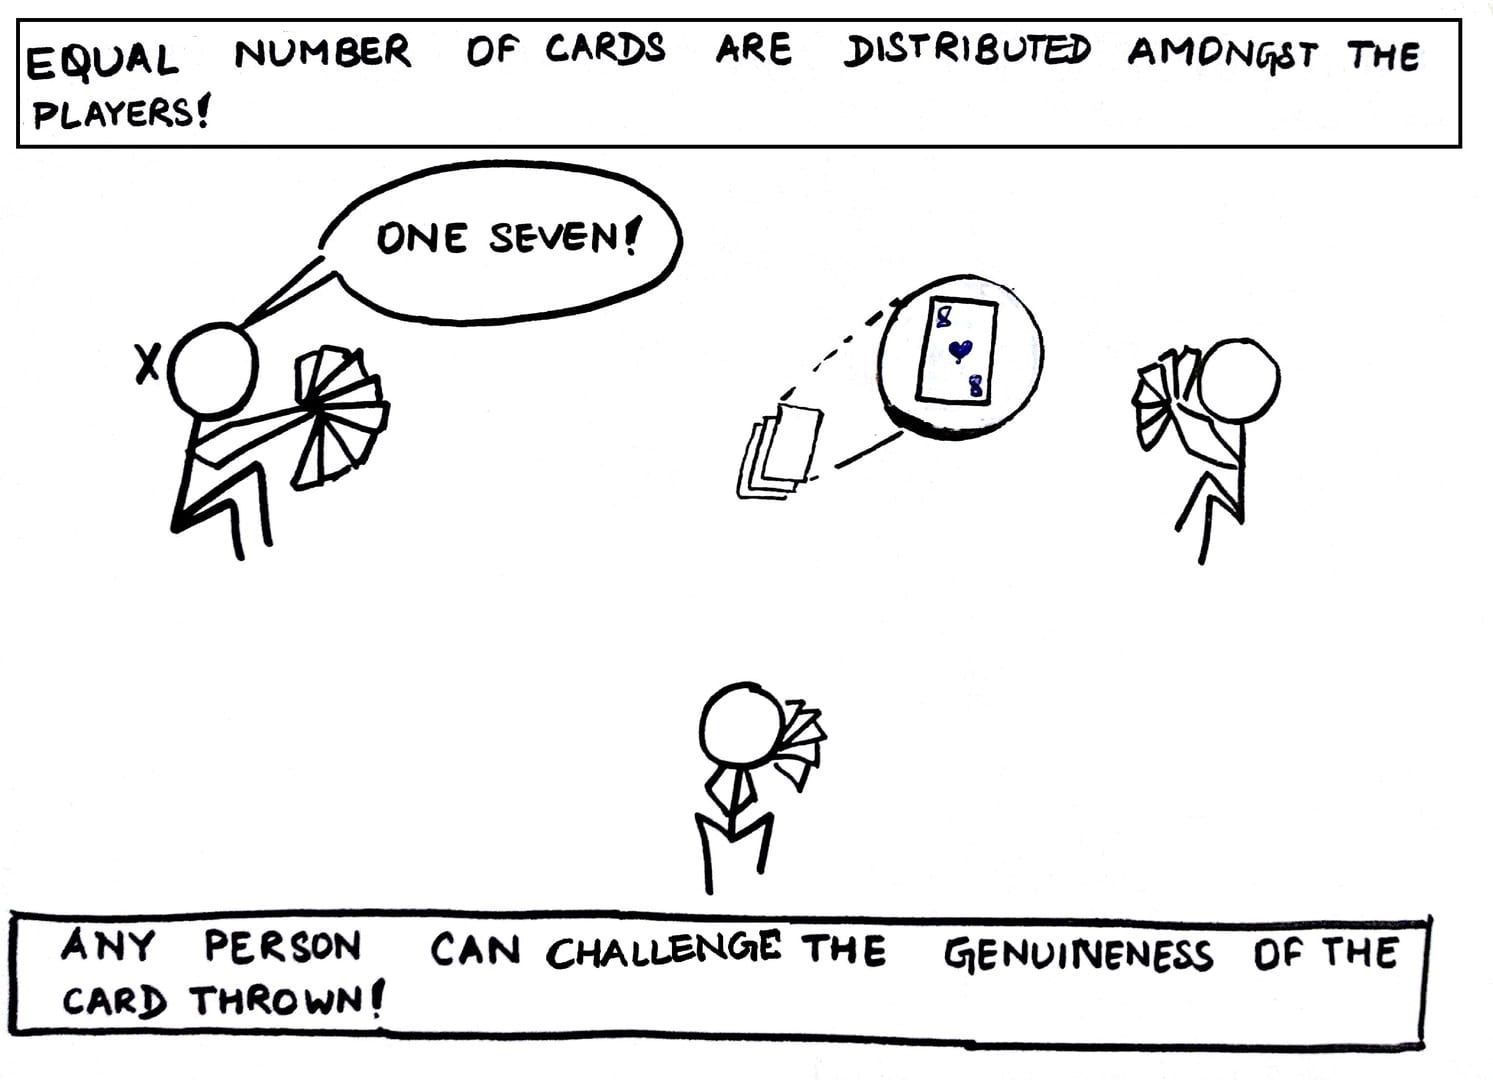 EQUAL NUMBER OF CARDS ARE DISTRIBUTED AMONGST THE
PLAYERS!
ONE SEVEN!
X
8
8
ANY PERSON CAN CHALLENGE THE GENUINENESS OF THE
CARD THROWN!